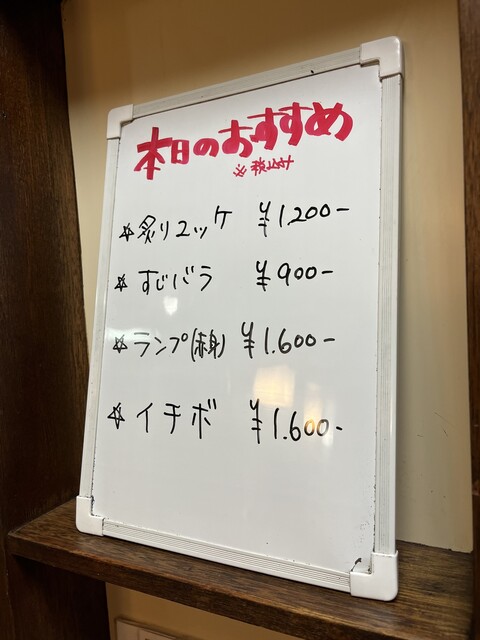 本日のおすすめ
※税込み
☆炙りユッケ ¥1200-
☆すじバラ ¥900-
☆ランプ(赤身) ¥1.600-
☆イチボ ¥1.600-